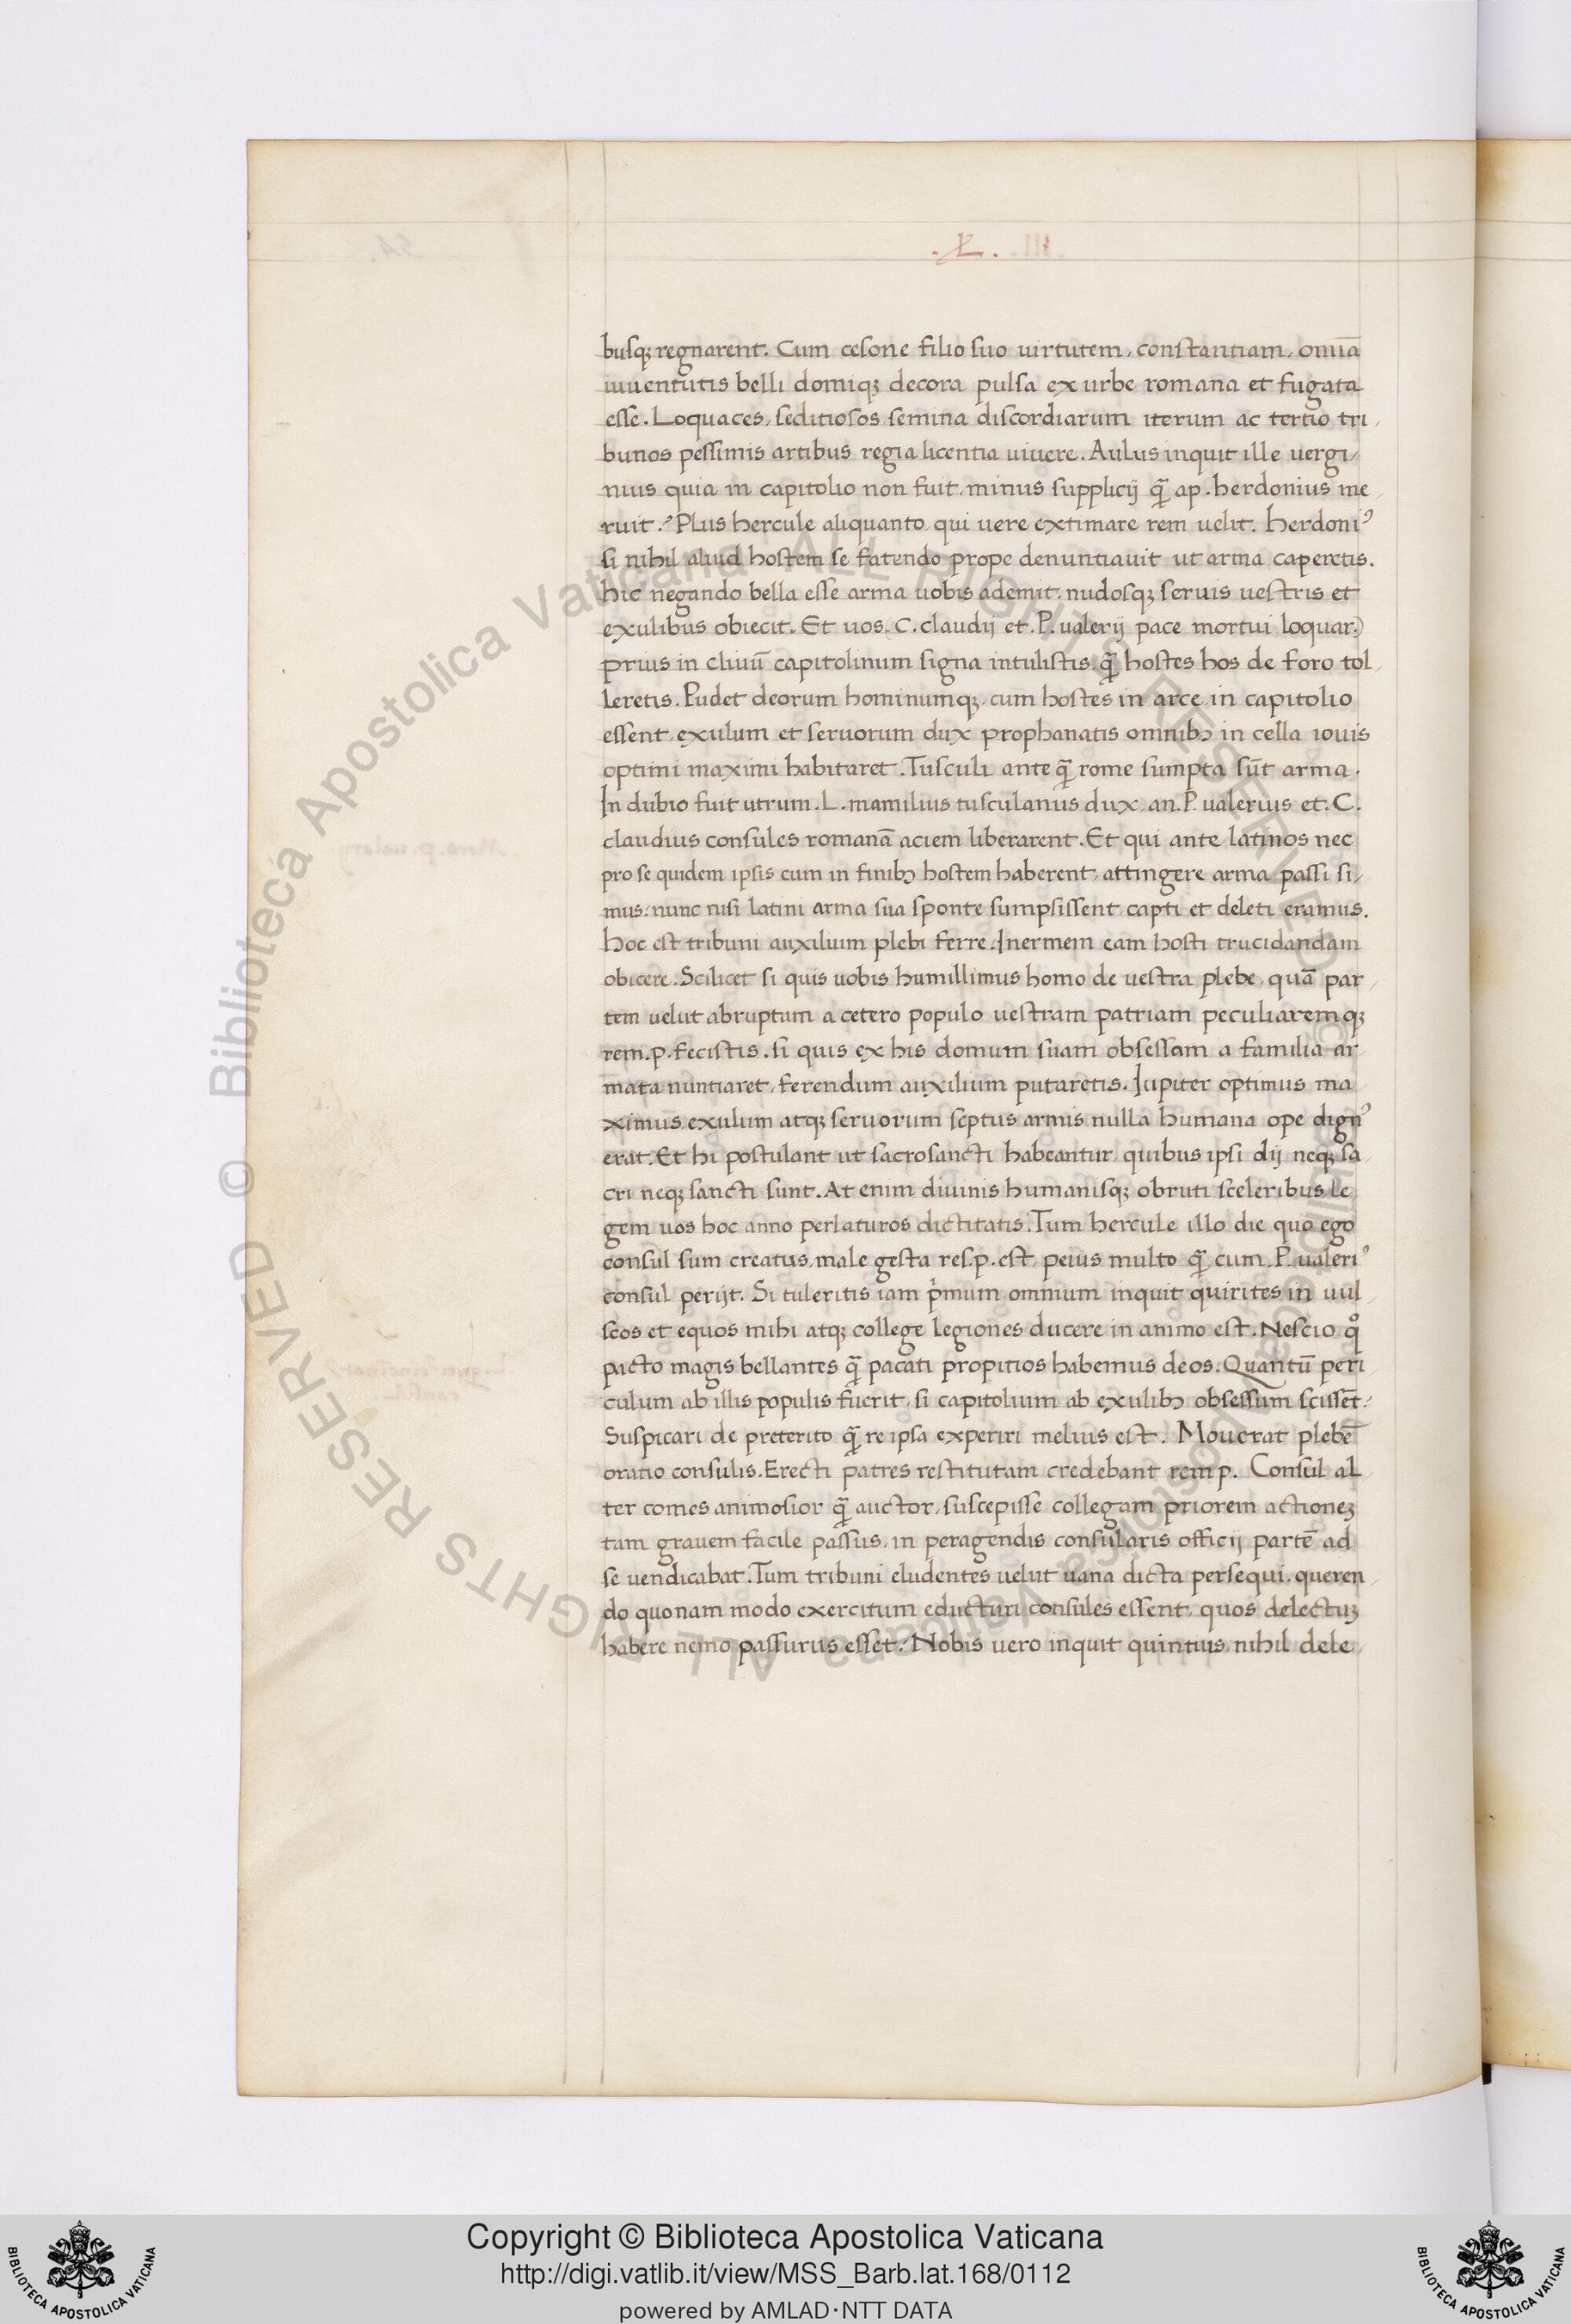 .L.
busqꝫ regnarent. Cum cesone filio suo uirtutem, constantiam, omīa
iuuentutis belli domiqꝫ decora pulsa ex urbe romana et fugata
esse. Loquaces, seditiosos semina discordiarum iterum ac tertio tri,
bunos pessimis artibus regia licentia uiuere. Aulus inquit ille uergi,
nius quia in capitolio non fuit, minus supplicij q̄ ap. herdonius me,
ruit? Plus hercule aliquanto qui uere extimare rem uelit. herdoniꝰ
si nihil aliud hostem se fatendo prope denuntiauit ut arma caperetis.
hic negando bella esse arma uobis ademit, nudosqꝫ seruis uestris et
exulibus obiecit. Et uos (C. claudij et .P. ualerij pace mortui loquar)
prius in cliuū capitolinum signa intulistis, q̄ hostes hos de foro tol,
leretis. Pudet deorum hominumqꝫ, cum hostes in arce in capitolio
essent, exulum et seruorum dux prophanatis omnibꝫ in cella iouis
optimi maximi habitaret. Tusculi ante q̄ rome sumpta sūt arma.
In dubio fuit utrum .L. mamilius tusculanus dux, an .P. ualerius et .C.
claudius consules romanā aciem liberarent. Et qui ante latinos nec
pro se quidem ipsis cum in finibꝫ hostem haberent, attingere arma passi si,
mus: nunc nisi latini arma sua sponte sumpsissent capti et deleti eramus.
hoc est tribuni auxilium plebi ferre. Inermem eam hosti trucidandam
obicere. Scilicet si quis uobis humillimus homo de uestra plebe, quā par,
tem uelut abruptam a cetero populo uestram patriam peculiaremqꝫ
rem.p. fecistis. si quis ex his domum suam obsessam a familia ar,
mata nuntiaret, ferendum auxilium putaretis. Iupiter optimus ma,
ximus exulum atqꝫ seruorum septus armis nulla humana ope dignꝰ
erat. Et hi postulant ut sacrosancti habeantur, quibus ipsi dij neqꝫ sa,
cri neqꝫ sancti sunt. At enim diuinis humanisqꝫ obruti sceleribus le,
gem uos hoc anno perlaturos dictitatis. Tum hercule illo die quo ego
consul sum creatus, male gesta res.p. est, peius multo q̄ cum .P. ualeriꝰ
consul perijt. Si tuleritis iam pͥmum omnium inquit quirites in uul,
scos et equos mihi atqꝫ college legiones ducere in animo est. Nescio qͦ
pacto magis bellantes q̄ pacati propitios habemus deos. Quantū peri,
culum ab illis populis fuerit, si capitolium ab exulibꝫ obsessum scissēt.
Suspicari de preterito q̄ re ipsa experiri melius est. Mouerat plebē
oratio consulis. Erecti patres restitutam credebant remp. Consul al,
ter comes animosior q̄ auctor, suscepisse collegam priorem actioneꝫ
tam grauem facile passus, in peragendis consularis officij partē ad
se uendicabat. Tum tribuni eludentes uelut uana dicta persequi, queren,
do quonam modo exercitum educturi consules essent, quos delectuꝫ
habere nemo passurus esset. Nobis uero inquit quintius, nihil dele,
© Biblioteca Apostolica Vaticana ALL RIGHTS RESERVED
© Biblioteca Apostolica Vaticana ALL RIGHTS RESERVED
BIBLIOTECA APOSTOLICA VATICANA
Copyright © Biblioteca Apostolica Vaticana
http://digi.vatlib.it/view/MSS_Barb.lat.168/0112
powered by AMLAD·NTT DATA
BIBLIOTECA APOSTOLICA VATICANA